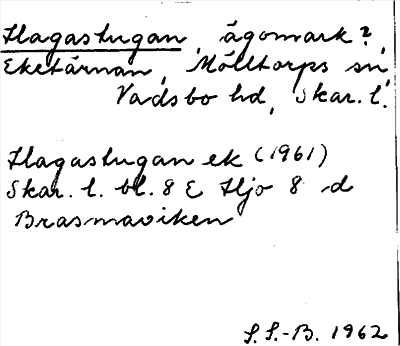 Hagastugan, ägomark?,
Eketärnan, Mölltorps sn,
Vadsbo hd, Skar. l.
Hagastugan ek (1961)
Skar. l. bl. 8 E Hjo 8 d
Brasmaviken
S.S.-B. 1962